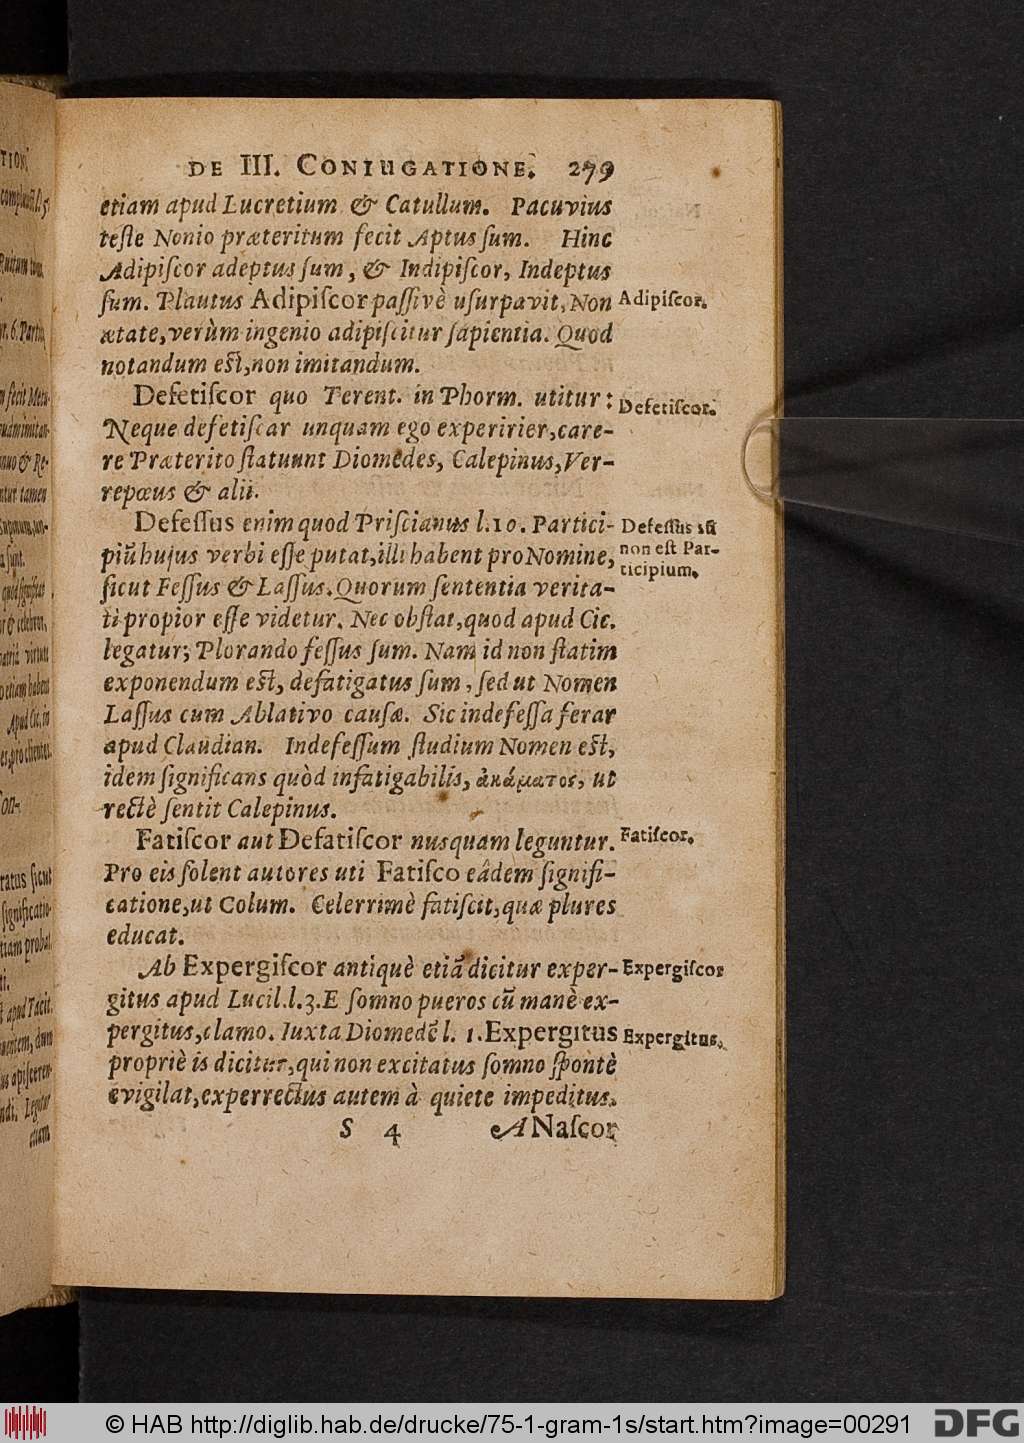 DE III. CONIUGATIONE. 279
etiam apud Lucretium & Catullum. Pacuvius
teſte Nonio præteritum fecit Aptus ſum. Hinc
Adipiſcor adeptus ſum, & Indipiſcor, Indeptus
ſum. Plautus Adipiſcor paſſivè uſurpavit, Non
Adipiſcor.
ætate, verùm ingenio adipiſcitur ſapientia. Quod
notandum eſt, non imitandum.
Defetiſcor quo Terent. in Phorm. utitur:
Defetiſcor.
Neque defetiſcar unquam ego experirier, care-
re Præterito ſtatuunt Diomedes, Calepinus, Ver-
repœus & alii.
Defeſſus enim quod Priſcianus l. 10. Partici-
piũ hujus verbi eſſe putat, illi habent pro Nomine,
Defeſſus
non eſt Par-
ticipium.
ſicut Feſſus & Laſſus. Quorum ſententia verita-
ti propior eſſe videtur. Nec obſtat, quod apud Cic.
legatur; Plorando feſſus ſum. Nam id non ſtatim
exponendum eſt, defatigatus ſum, ſed ut Nomen
Laſſus cum Ablativo cauſæ. Sic indefeſſa ferar
apud Claudian. Indefeſſum ſtudium Nomen eſt,
idem ſignificans quòd infatigabilis, ἀκάματος, ut
rectè ſentit Calepinus.
Fatiſcor aut Defatiſcor nusquam leguntur.
Fatiſcor.
Pro eis ſolent autores uti Fatiſco eâdem ſignifi-
catione, ut Colum. Celerrimè fatiſcit, quæ plures
educat.
Ab Expergiſcor antiquè etiã dicitur exper-
Expergiſcor
gitus apud Lucil. l. 3. E ſomno pueros cũ manè ex-
pergitus, clamo. Iuxta Diomedẽ l. 1. Expergitus
Expergitus.
propriè is dicitur, qui non excitatus ſomno ſpontè
evigilat, experrectus autem à quiete impeditus.
S 4 A Naſcor
TION.
ratus ſicut
ſignificatio-
tiam probat
apud Tacit.
etiam
© HAB http://diglib.hab.de/drucke/75-1-gram-1s/start.htm?image=00291 DFG